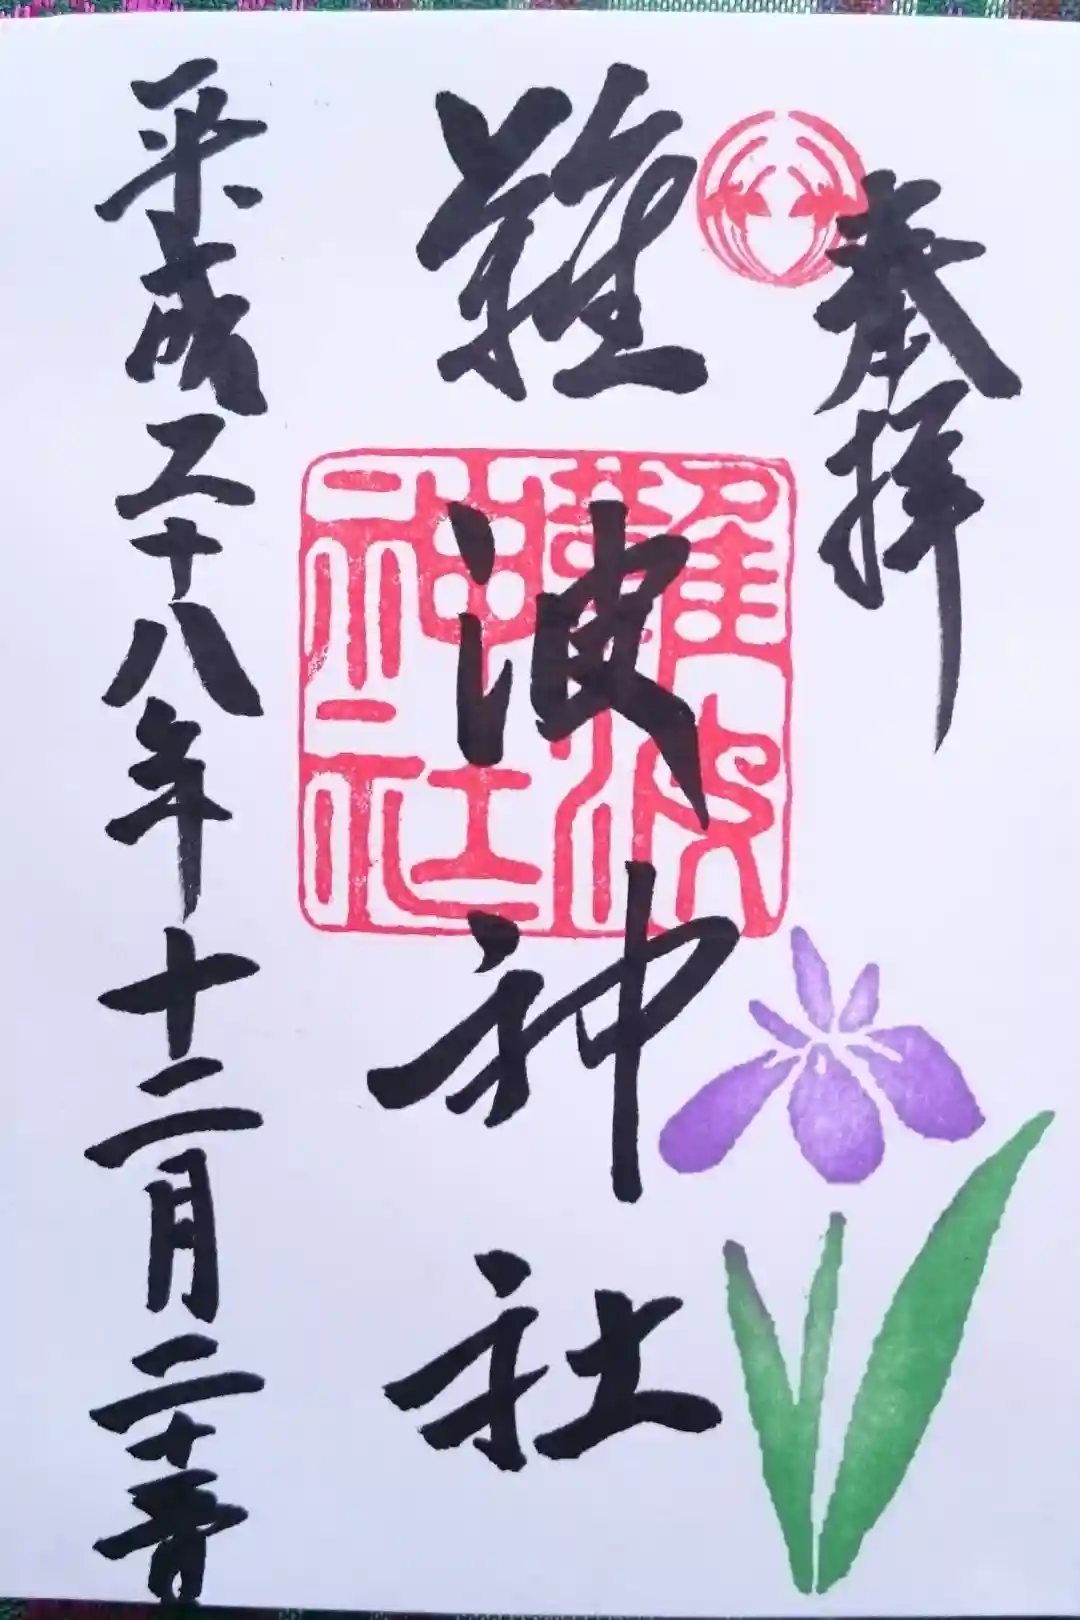 奉拝
難波神社
難波
神社
平成二十八年十二月二十五日